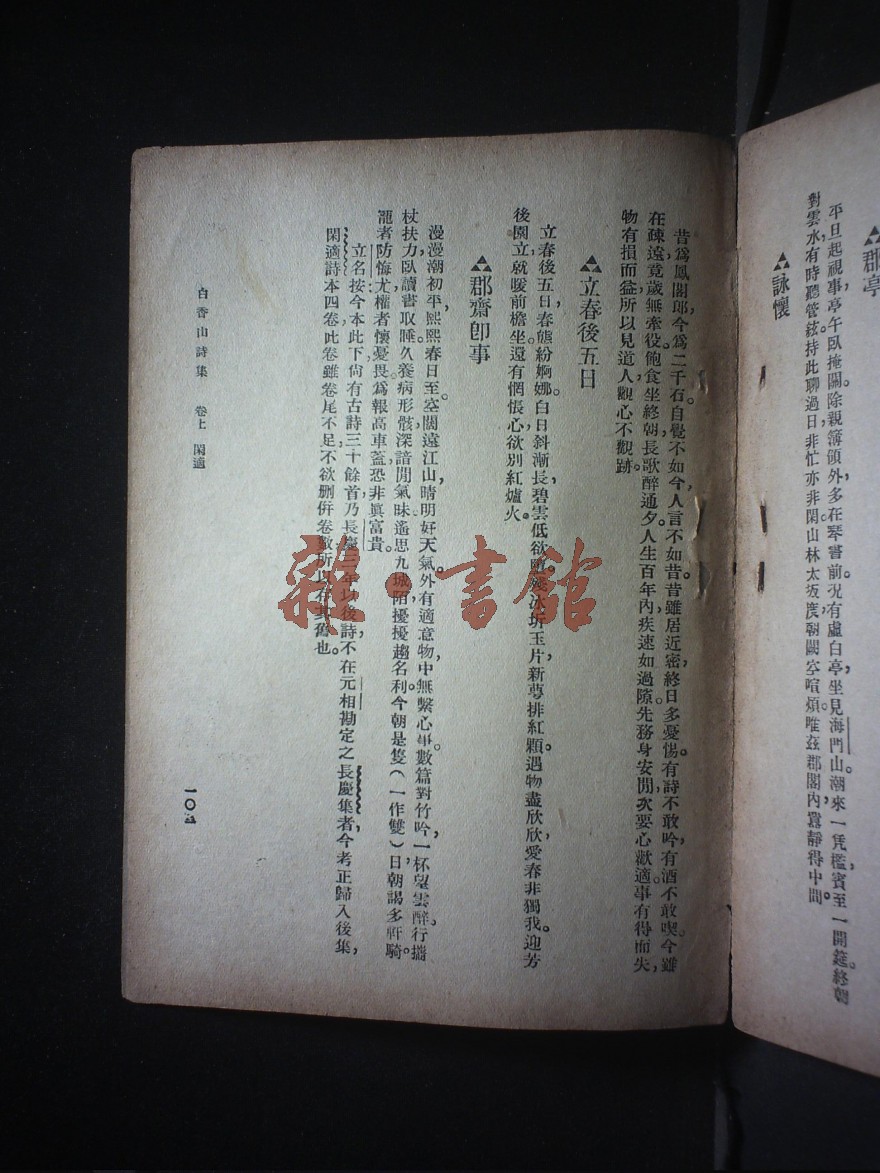 郡亭
平旦起視事，亭午臥掩關。除親簿領外，多在琴書前。況有虛白亭，坐見海門山。潮來一凭檻，賓至一開筵。終朝
對雲水，有時聽管絃。持此聊過日，非忙亦非閑。山林太寂，朝闕空喧煩。唯茲郡閣內，囂靜得中間
詠懷
昔爲鳳閣郎，今爲二千石。自覺不如今，人言不如昔。昔雖居近密，終日多憂惕。有詩不敢吟，有酒不敢喫。今雖
在疎遠，竟歲無牽役。飽食坐終朝，長歌醉通夕。人生百年內，疾速如過隙。先務身安閒，次要心歡適。事有得而失，
物有損而益。所以見道人，觀心不觀跡。
立春後五日
立春後五日，春態紛婀娜。白日斜漸長，碧雲低欲墮。殘冰坼玉片，新萼排紅顆。遇物盡欣欣，愛春非獨我。迎芳
後園立，就暖前檐坐。還有惆悵心，欲別紅爐火。
郡齋卽事
漫漫潮初平，熙熙春日至。空闊遠江山，晴明好天氣。外有適意物，中無繫心事。數篇對竹吟，一杯望雲醉。行攜
杖扶力，臥讀書取睡。久養病形骸，深諳閒氣味。遙思九城陌，擾擾趨名利。今朝是隻（一作雙）日，朝謁多軒騎。
寵者防悔尤，權者懷憂畏。爲報高車蓋，恐非眞富貴。
立名按今本此下尙有古詩三十餘首，乃長慶三年以後詩，不在元相勘定之長慶集者，今考正歸入後集，
閑適詩本四卷，此卷雖卷尾不足，不欲刪併卷數，所以存其舊也。
白香山詩集 卷上 閑適
一〇五
雜·書館